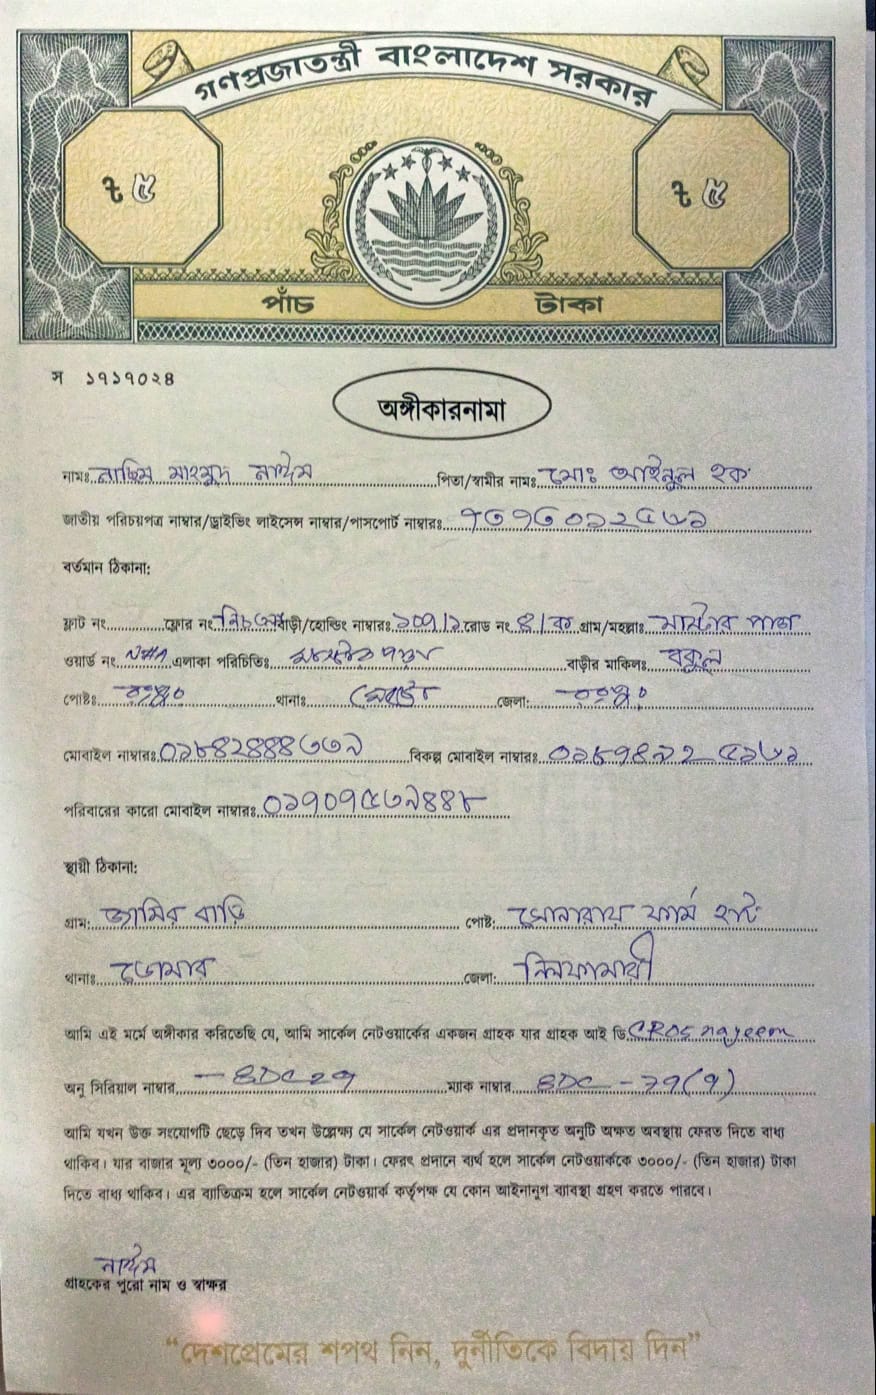 গণপ্রজাতন্ত্রী বাংলাদেশ সরকার
৳ ৫ ৳ ৫
পাঁচ টাকা
স ১৭১৭০২৪
অঙ্গীকারনামা
নামঃ নাছিম মাহমুদ নাঈম পিতা/স্বামীর নামঃ মোঃ আইনুল হক
জাতীয় পরিচয়পত্র নাম্বার/ড্রাইভিং লাইসেন্স নাম্বার/পাসপোর্ট নাম্বারঃ
বর্তমান ঠিকানা:
ফ্লাট নং ফ্লোর নং নিচ তলা বাড়ী/হোল্ডিং নাম্বারঃ রোড নং ৪/ক গ্রাম/মহল্লাঃ মাস্টার পাড়া
ওয়ার্ড নং এলাকা পরিচিতিঃ বাড়ীর মালিকঃ বকুল
পোষ্টঃ রংপুর থানাঃ জেলা: রংপুর
মোবাইল নাম্বারঃ ০১৮৪২৪৪৪৩৩৯ বিকল্প মোবাইল নাম্বারঃ
পরিবারের কারো মোবাইল নাম্বারঃ ০১৭০৭৫৩৯৪৪৮
স্থায়ী ঠিকানা:
গ্রাম: জামির বাড়ি পোষ্ট: সোনারায় ফার্ম হাট
থানাঃ ডোমার জেলা: নিলফামারী
আমি এই মর্মে অঙ্গীকার করিতেছি যে, আমি সার্কেল নেটওয়ার্কের একজন গ্রাহক যার গ্রাহক আই ডি CROS nayeem
অনু সিরিয়াল নাম্বার ম্যাক নাম্বার
আমি যখন উক্ত সংযোগটি ছেড়ে দিব তখন উল্লেক্ষ্য যে সার্কেল নেটওয়ার্ক এর প্রদানকৃত অনুটি অক্ষত অবস্থায় ফেরত দিতে বাধ্য
থাকিব। যার বাজার মূল্য ৩০০০/- (তিন হাজার) টাকা। ফেরৎ প্রদানে ব্যর্থ হলে সার্কেল নেটওয়ার্ককে ৩০০০/- (তিন হাজার) টাকা
দিতে বাধ্য থাকিব। এর ব্যতিক্রম হলে সার্কেল নেটওয়ার্ক কর্তৃপক্ষ যে কোন আইনানুগ ব্যাবস্থা গ্রহণ করতে পারবে।
নাঈম
গ্রাহকের পুরো নাম ও স্বাক্ষর
“দেশপ্রেমের শপথ নিন, দুর্নীতিকে বিদায় দিন”